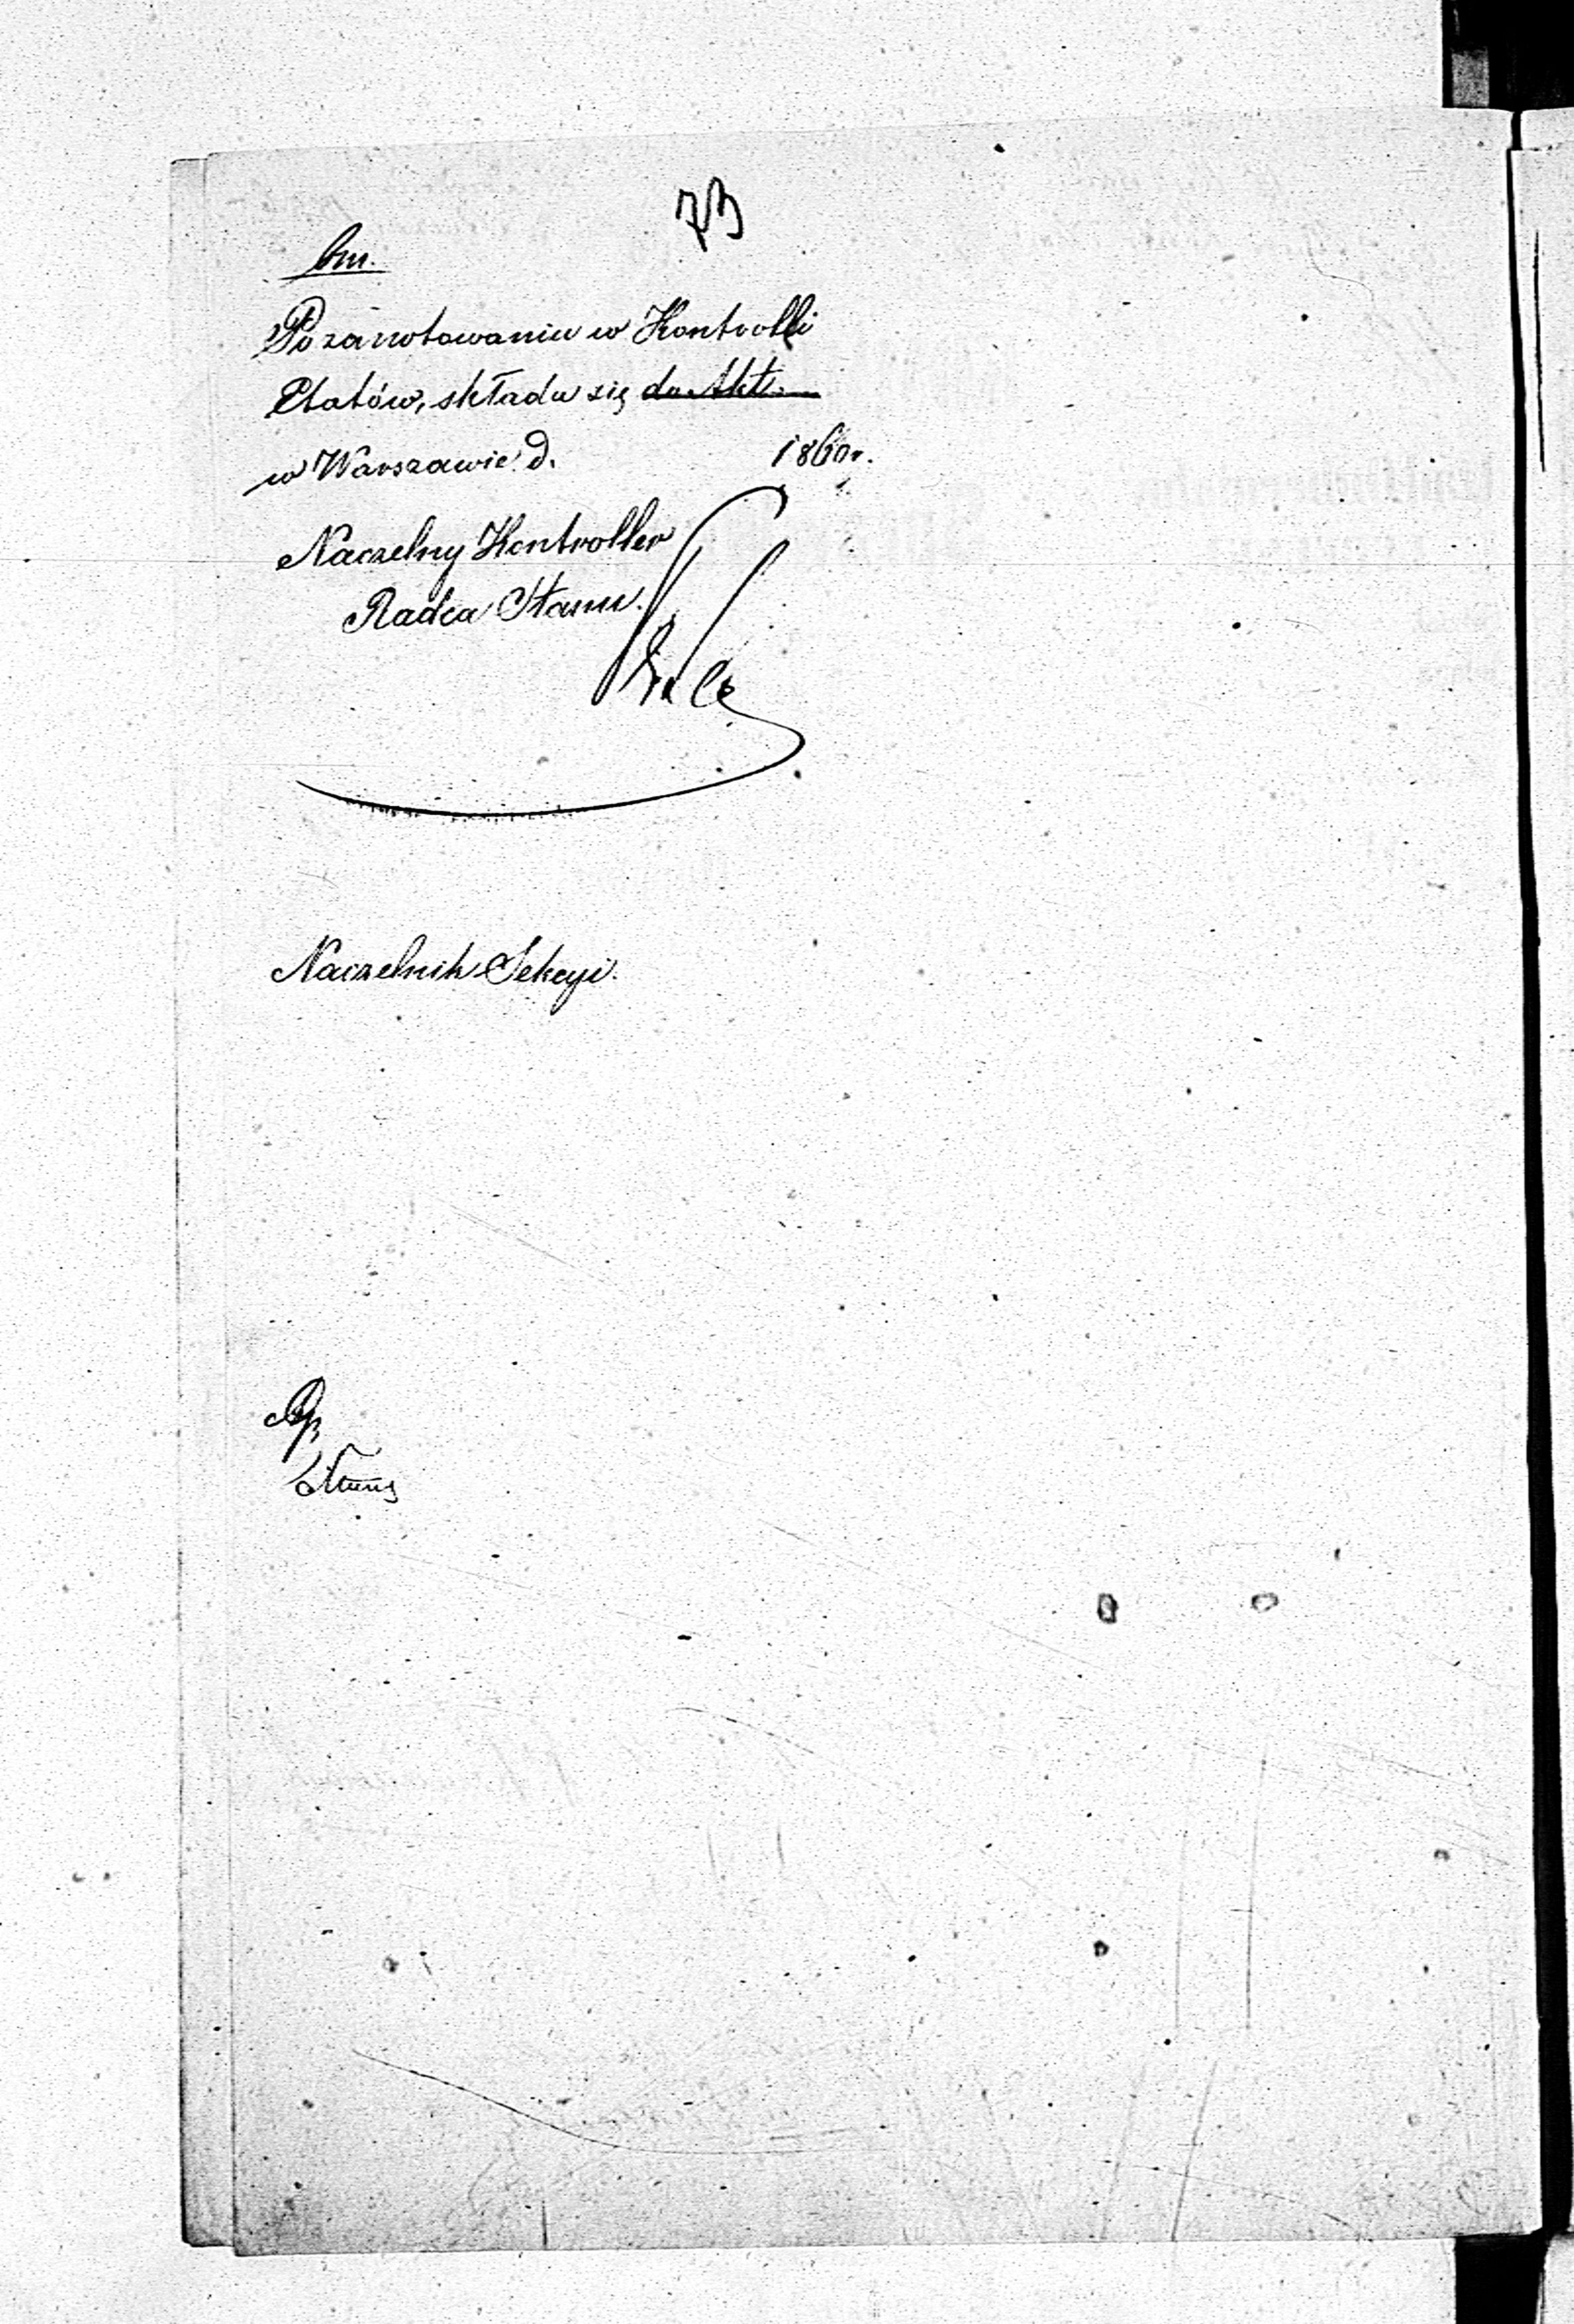 73
bm.
Po zanotowaniu w Kontrolli
Etatów, składa się do Akt.
w Warszawie d. 1860r.
Naczelny Kontroller
Radca Stanu.
Naczelnik Sekcyi.